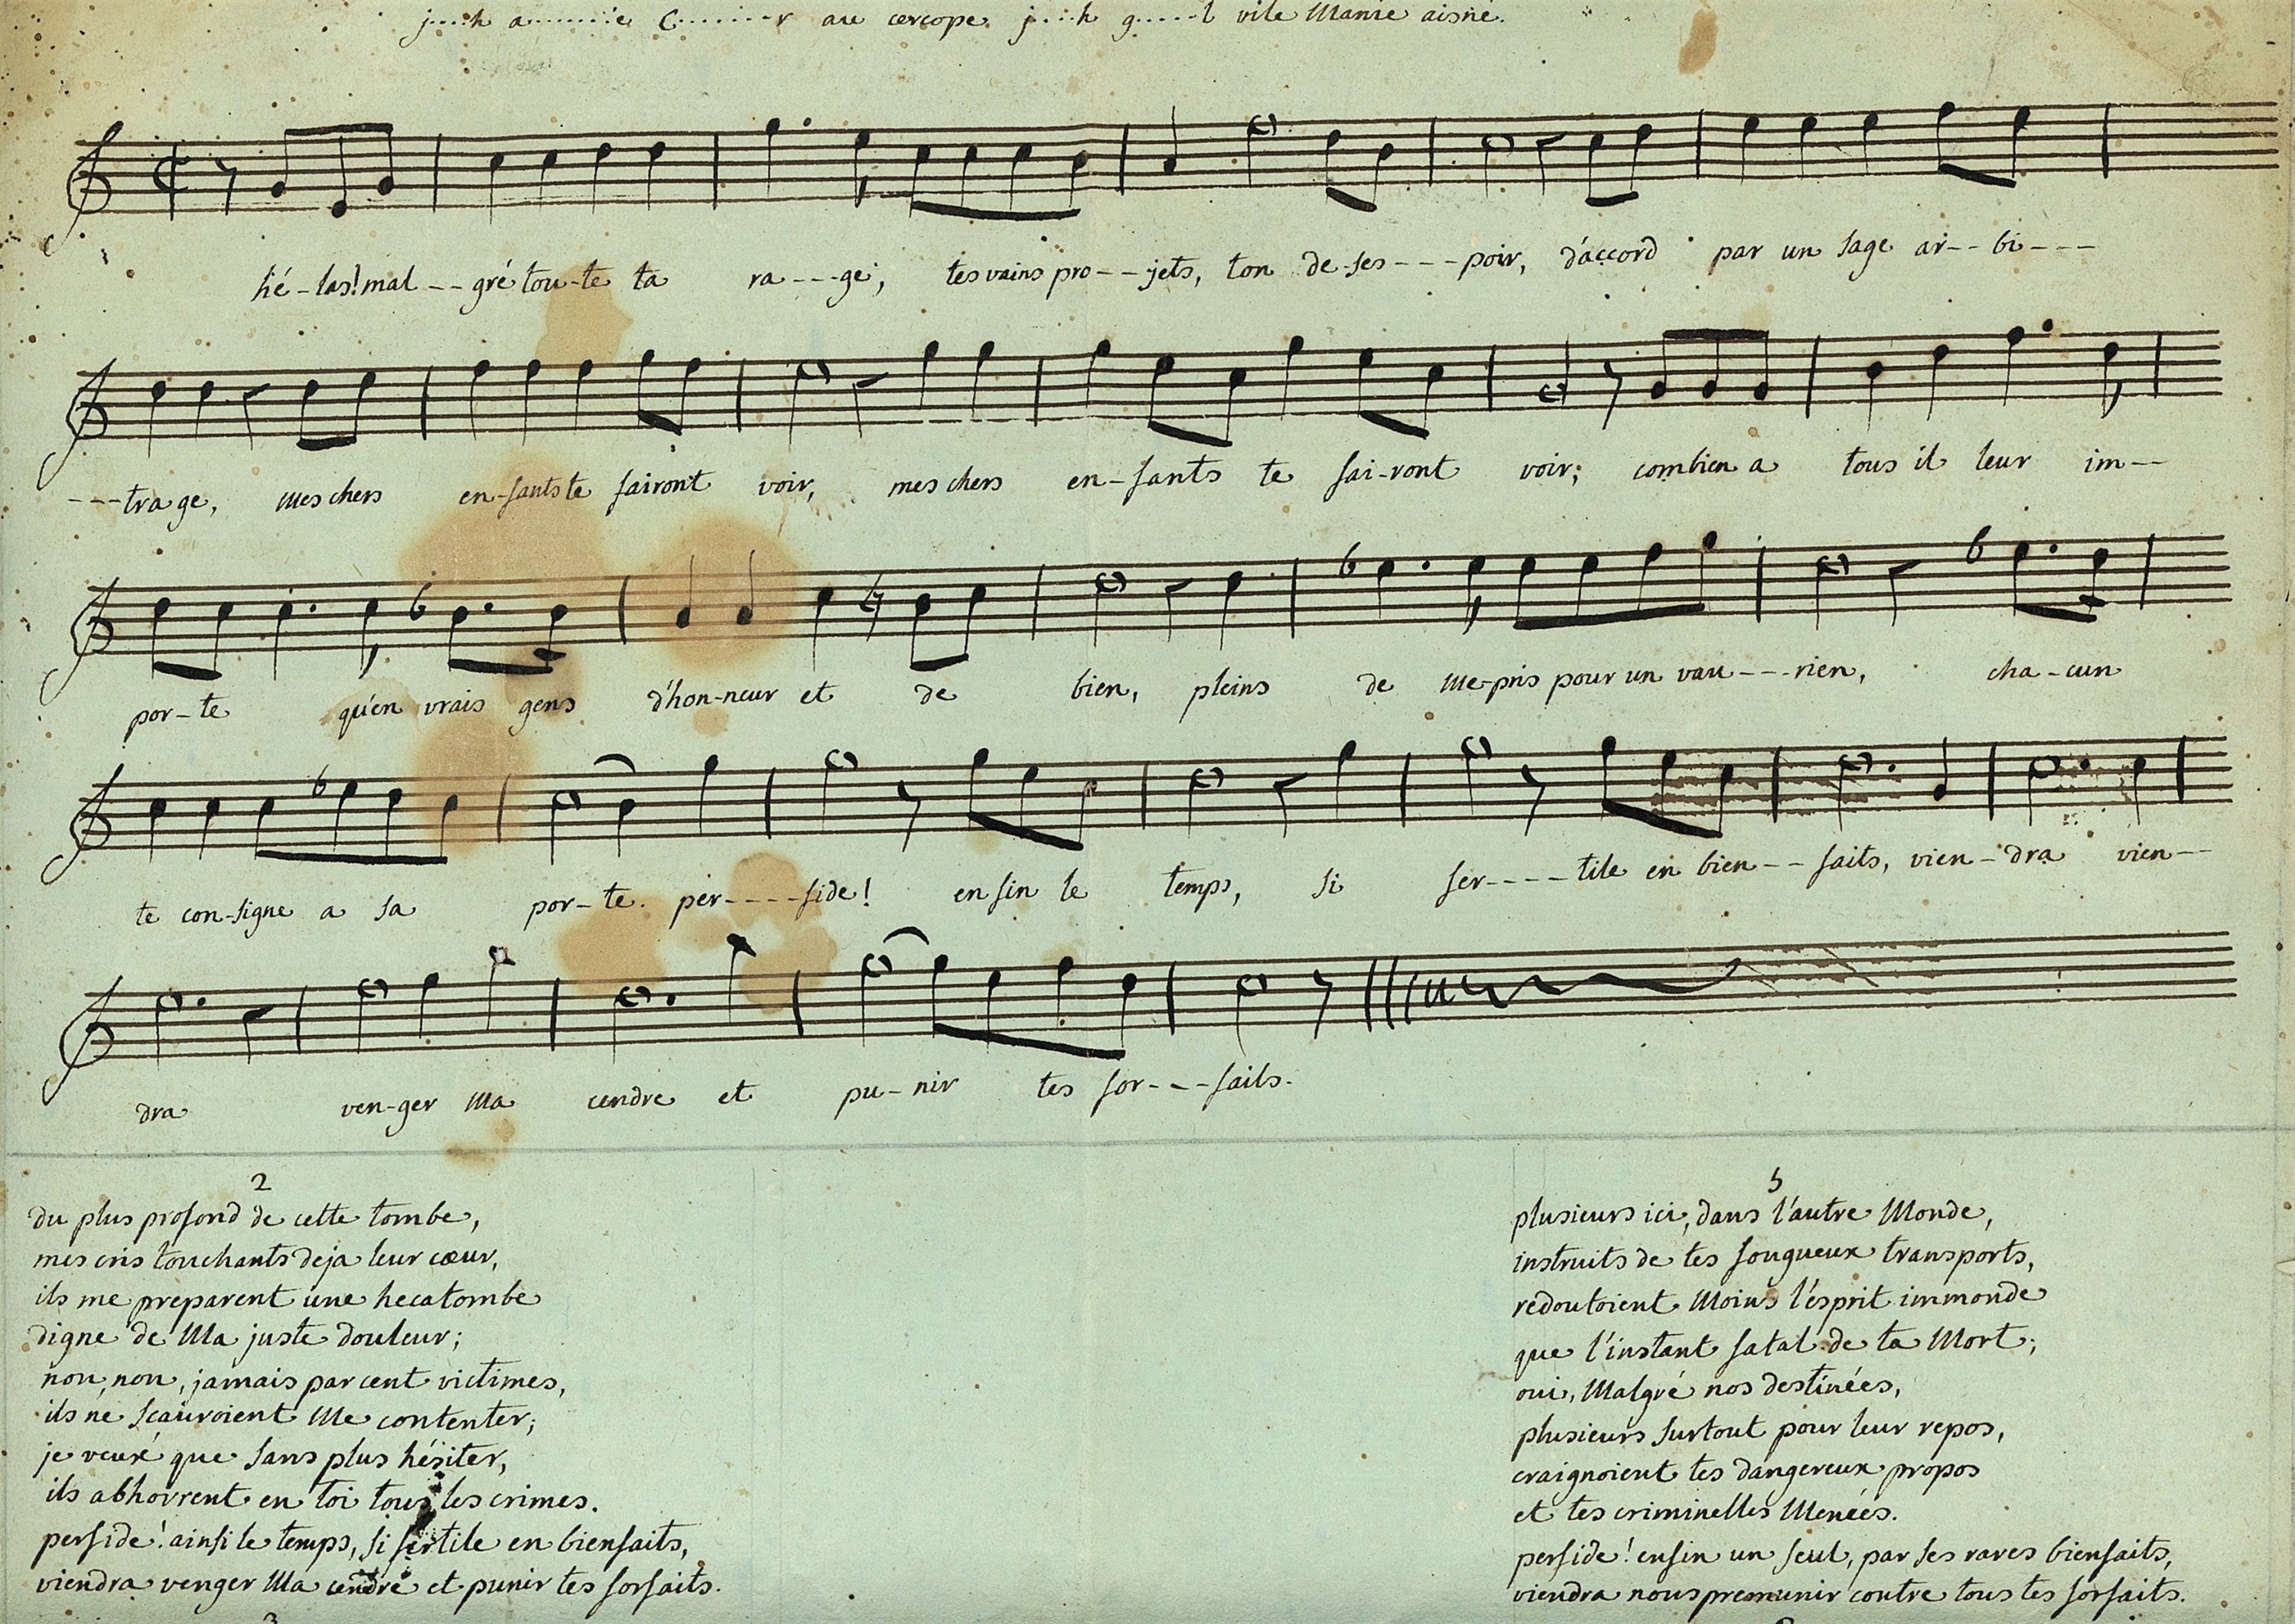 j....h a.......ie C.......r au cercope j....h g.....l vile Manie aisné.
hé-las! mal--gré tou-te ta ra---ge; tes vains pro--jets, ton de-ses---poir, d'accord par un sage ar--bi---
---trage, mes chers en-fants te fairont voir, mes chers en-fants te fai-ront voir; combien a tous il leur im--
por-te qu'en vrais gens d'hon-neur et de bien, pleins de me-pris pour un vau---rien, cha-cun
te con-signe a sa por-te. per----fide! enfin le temps, si fer----tile en bien--faits, vien-dra vien--
dra ven-ger Ma cendre et pu-nir tes for---faits.
2
du plus profond de cette tombe,
mes cris touchants deja leur cœur,
ils me preparent une hecatombe
digne de Ma juste douleur;
non, non, jamais par cent victimes,
ils ne scauroient Me contenter;
je veux que sans plus hésiter,
ils abhorrent en toi tous les crimes.
perfide! ainsi le temps, si fertile en bienfaits,
viendra venger Ma cendre et punir tes forfaits.
3
5
plusieurs ici, dans l'autre Monde,
instruits de tes fougueux transports,
redoutoient Moins l'ésprit immonde
que l'instant fatal de ta Mort;
oui, Malgré nos destinées,
plusieurs surtout pour leur repos,
craignoient tes dangereux propos
et tes criminelles Menées.
perfide! enfin un seul, par ses rares bienfaits,
viendra nous premunir contre tous tes forfaits.